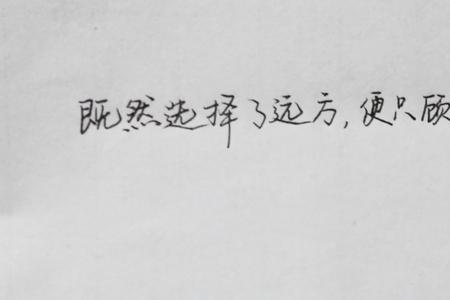 既然选择了远方,便只顾